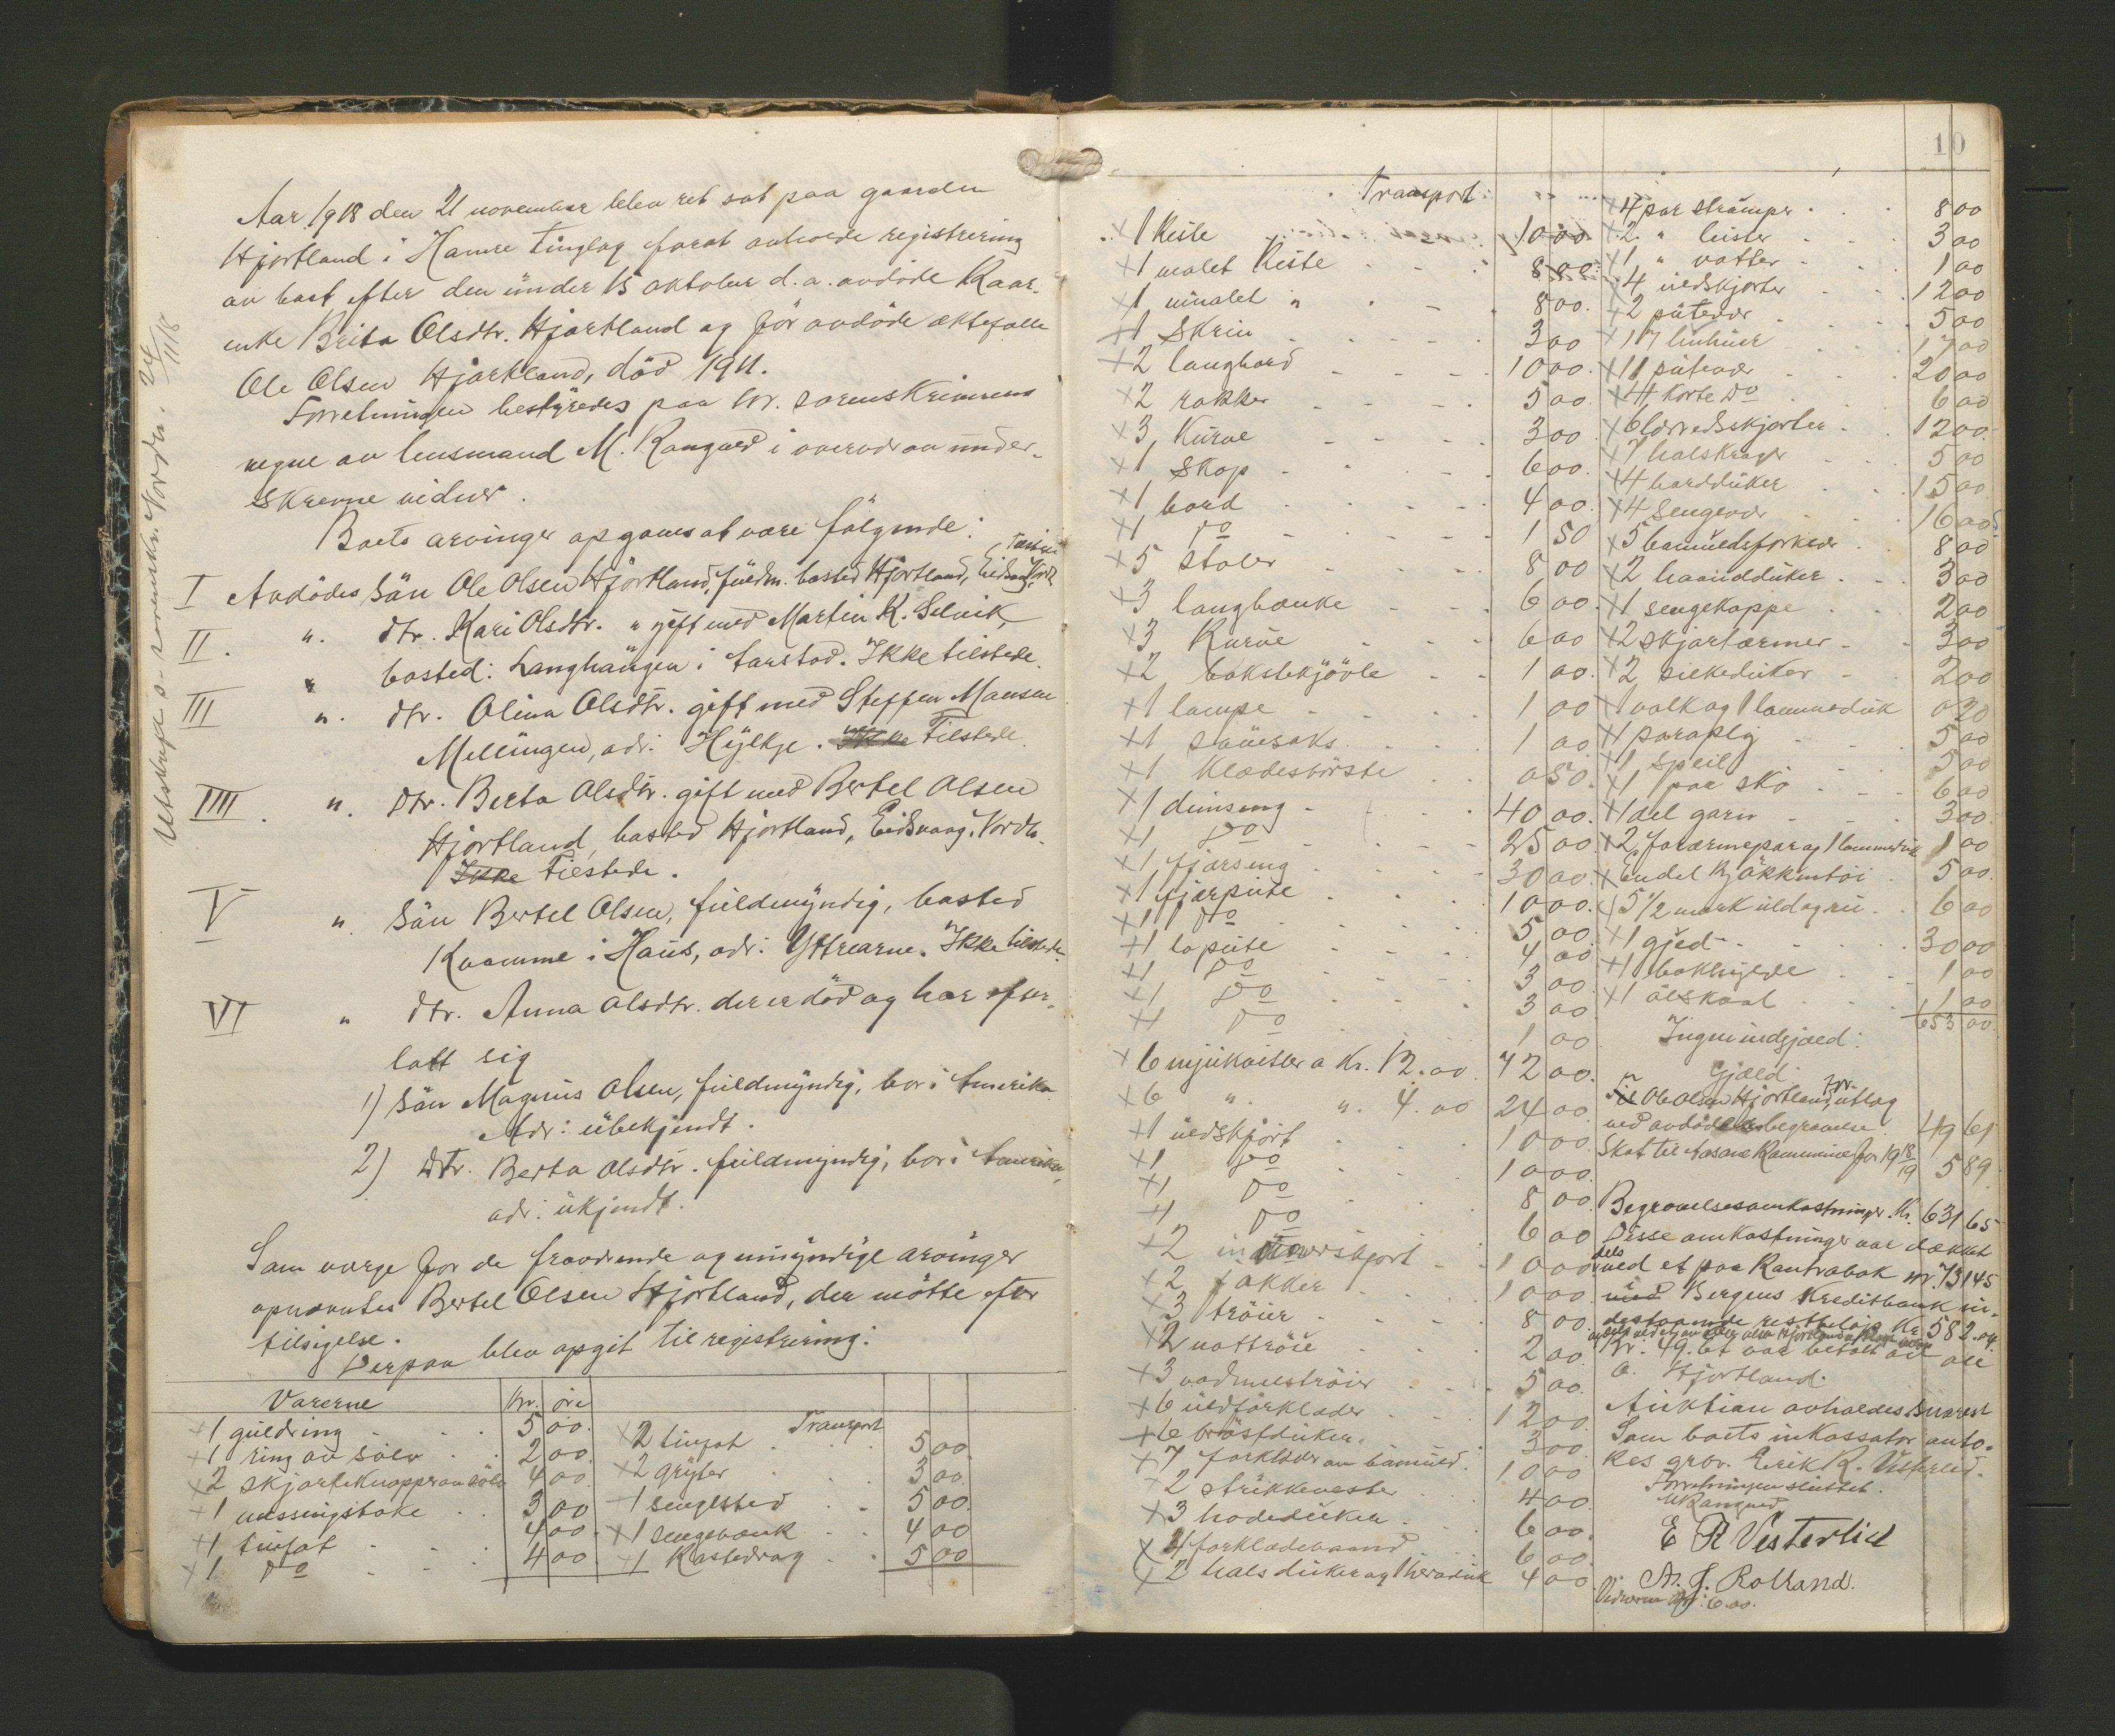 Utskrift s. sorenskr. Nordh. 24/11 18
Aar 1918 den 21 november blev ret sat paa gaarden
Hjortland i Hamre tinglag forat avholde registrering
av boet efter den under 15 oktober d.a. avdöde Kaar-
enke Brita Olsdtr. Hjortland og för avdöde ektefælle
Ole Olsen Hjortland, död 1911.
Forretningen bestyredes paa hr. sorenskriverens
vegne av lensmand M. Rongved i overvær av under-
skrevne vidner.
Boets arvinger opgaves at være fölgende:
I Avdödes Sön Ole Olsen Hjortland, fuldm. bosted Hjortland, Eidsvaag, Nordh. Tilstede
II. " dtr. Kari Olsdtr. " gift med Martin K. Selvik,
" bosted: Langhaugen i Aarstad. Ikke tilstede.
III " dtr. Olina Olsdtr. gift med Steffen Monsen
Mellingen, adr: Hylkje. Ikke Tilstede.
IIII. " Dtr. Berta Olsdtr. gift med Bertel Olsen
Hjortland, bosted Hjortland, Eidsvaag, Nordh.
Ikke Tilstede.
V " Sön Bertel Olsen, fuldmyndig, bosted
Kvamme i Haus, adr: Yttrearne. Ikke tilstede.
VI " dtr. Anna Olsdtr. der er död og har efter-
latt sig
1) Sön Magnus Olsen, fuldmyndig, bor i Amerika
Adr: ubekjendt.
2) Dtr. Berta Olsdtr. fuldmyndig, bor i Amerika,
adr: ukjendt.
Som verge for de fraværende og umyndige arvinger
opnævntes Bertel Olsen Hjortland, der mötte efter
tilsigelse.
Derpaa blev opgit til registrering:
Varerne Kr. öre
1 guldring 5 00
1 ring av sölv 2 00
2 skjorteknapper av sölv 4 00
1 messingstake 3 00
1 tinfat 4 00
1 Do 4 00
Transport
2 tinfat 5 00
2 gryter 3 00
1 sengested 5 00
1 sengebænk 4 00
1 Kastedrag 5 00
10
Transport:
1 Kiste 10 00
1 malet Kiste 8 00
1 umalet " 8 00
1 Skrin 3 00
2 langbord 10 00
2 rokker 5 00
3 Kurve 3 00
1 skap 6 00
1 bord 4 00
1 Do 1 50
5 stoler 8 00
3 langbænke 6 00
3 Kurve 6 00
2 bakstekjövle 1 00
1 lampe 1 00
1 sauesaks 1 00
1 Klædesbörste 0 50
1 dunseng 40 00
1 Do 25 00
1 fjærseng 30 00
1 fjærpute 10 00
1 Do 5 00
1 lopute 4 00
1 Do 3 00
1 Do 3 00
1 Do 1 00
6 mjukaitler a Kr. 12.00 72 00
6 " " 4.00 24 00
1 uldskjört 10 00
1 Do 10 00
1 Do 8 00
1 Do 6 00
2 underskjört 10 00
2 jakker 10 00
3 tröier 8 00
2 nattröie 2 00
3 vadmelströier 5 00
6 uldforklæder 12 00
6 bröstduker 3 00
7 forklæder av bomuld 10 00
2 strikkevester 4 00
3 hodeduker 6 00
4 forklædebaand 6 00
2 halsduker og 1 heraduk 4 00
4 par strömper 8 00
2 " leister 3 00
1 " votter 1 00
4 uldskjorter 12 00
2 putevær 5 00
17 linhuer 17 00
11 putevær 20 00
4 korte Do 6 00
6 lærredsskjorter 12 00
7 halskraver 5 00
4 bordduker 15 00
4 Sengevær 16 00
5 bomuldsforklær 8 00
2 haandduker 3 00
1 sengekappe 2 00
2 skjortærmer 3 00
2 silkeduker 2 00
1 valk og 1 lommeduk 0 20
1 paraply 5 00
1 speil 5 00
1 par sko 6 00
1 del garn 3 00
2 forærmepar og 1 lommeduk 1 00
Endel Kjökkentöi 5 00
5 1/2 mark uldagrei 6 00
1 gjed 30 00
1 bakhylde 1 00
1 ölskaal 1 00
653 00
Ingen indgjæld:
Gjæld:
til Ole Olsen Hjortland, for utlæg
ved avdödes begravelse 49 61
Skat til Aasane Kommune for 1918/19 5 89
Begravelsesomkostninger Kr. 631 65
Disse omkostninger var dækket
dels ved et paa Kontrabok nr. 73145
i Bergens Kreditbank in-
destaaende restbelöp Kr. 582.04
Kr. 49.61 var betalt av Ole
O. Hjortland.
Auktion avholdes snarest
Som boets inkassator anto-
kes grbr. Erik R. Vesterlid.
Forretningen sluttet.
M Rongved
E R Vesterlid
A. J. Rolland.
Vidnerne 6.00.